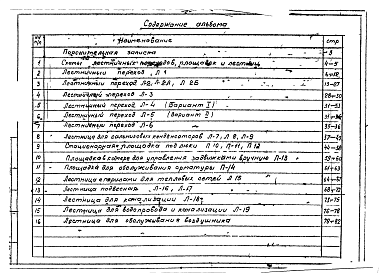 Содержание альбома
№№ п/п Наименование стр
Пояснительная записка 3
1 Схемы лестничных переходов, площадок и лестниц 4-5
2 Лестничный переход Л 1
3 Лестничный переход Л2, Л 2А, Л 2Б
4 Лестничный переход Л-3
5 Лестничный переход Л-4 (Вариант I)
6 Лестничный переход Л-5 (Вариант II)
7 Лестничный переход Л-6
8 Лестница для сальниковых компенсаторов Л-7, Л 8, Л-9
9 Стационарная площадка под люки Л 10, Л-11, Л 12
10 Площадка в камере для управления задвижками вручную Л-13
11 Площадка для обслуживания арматуры Л-14
12 Лестница с перилами для тепловых сетей Л 15
13 Лестница подвесная Л-16, Л-17
14 Лестница для канализации Л-18
15 Лестница для водопровода и канализации Л-19 76-78
16 Лестница для обслуживания воздушника 79-82